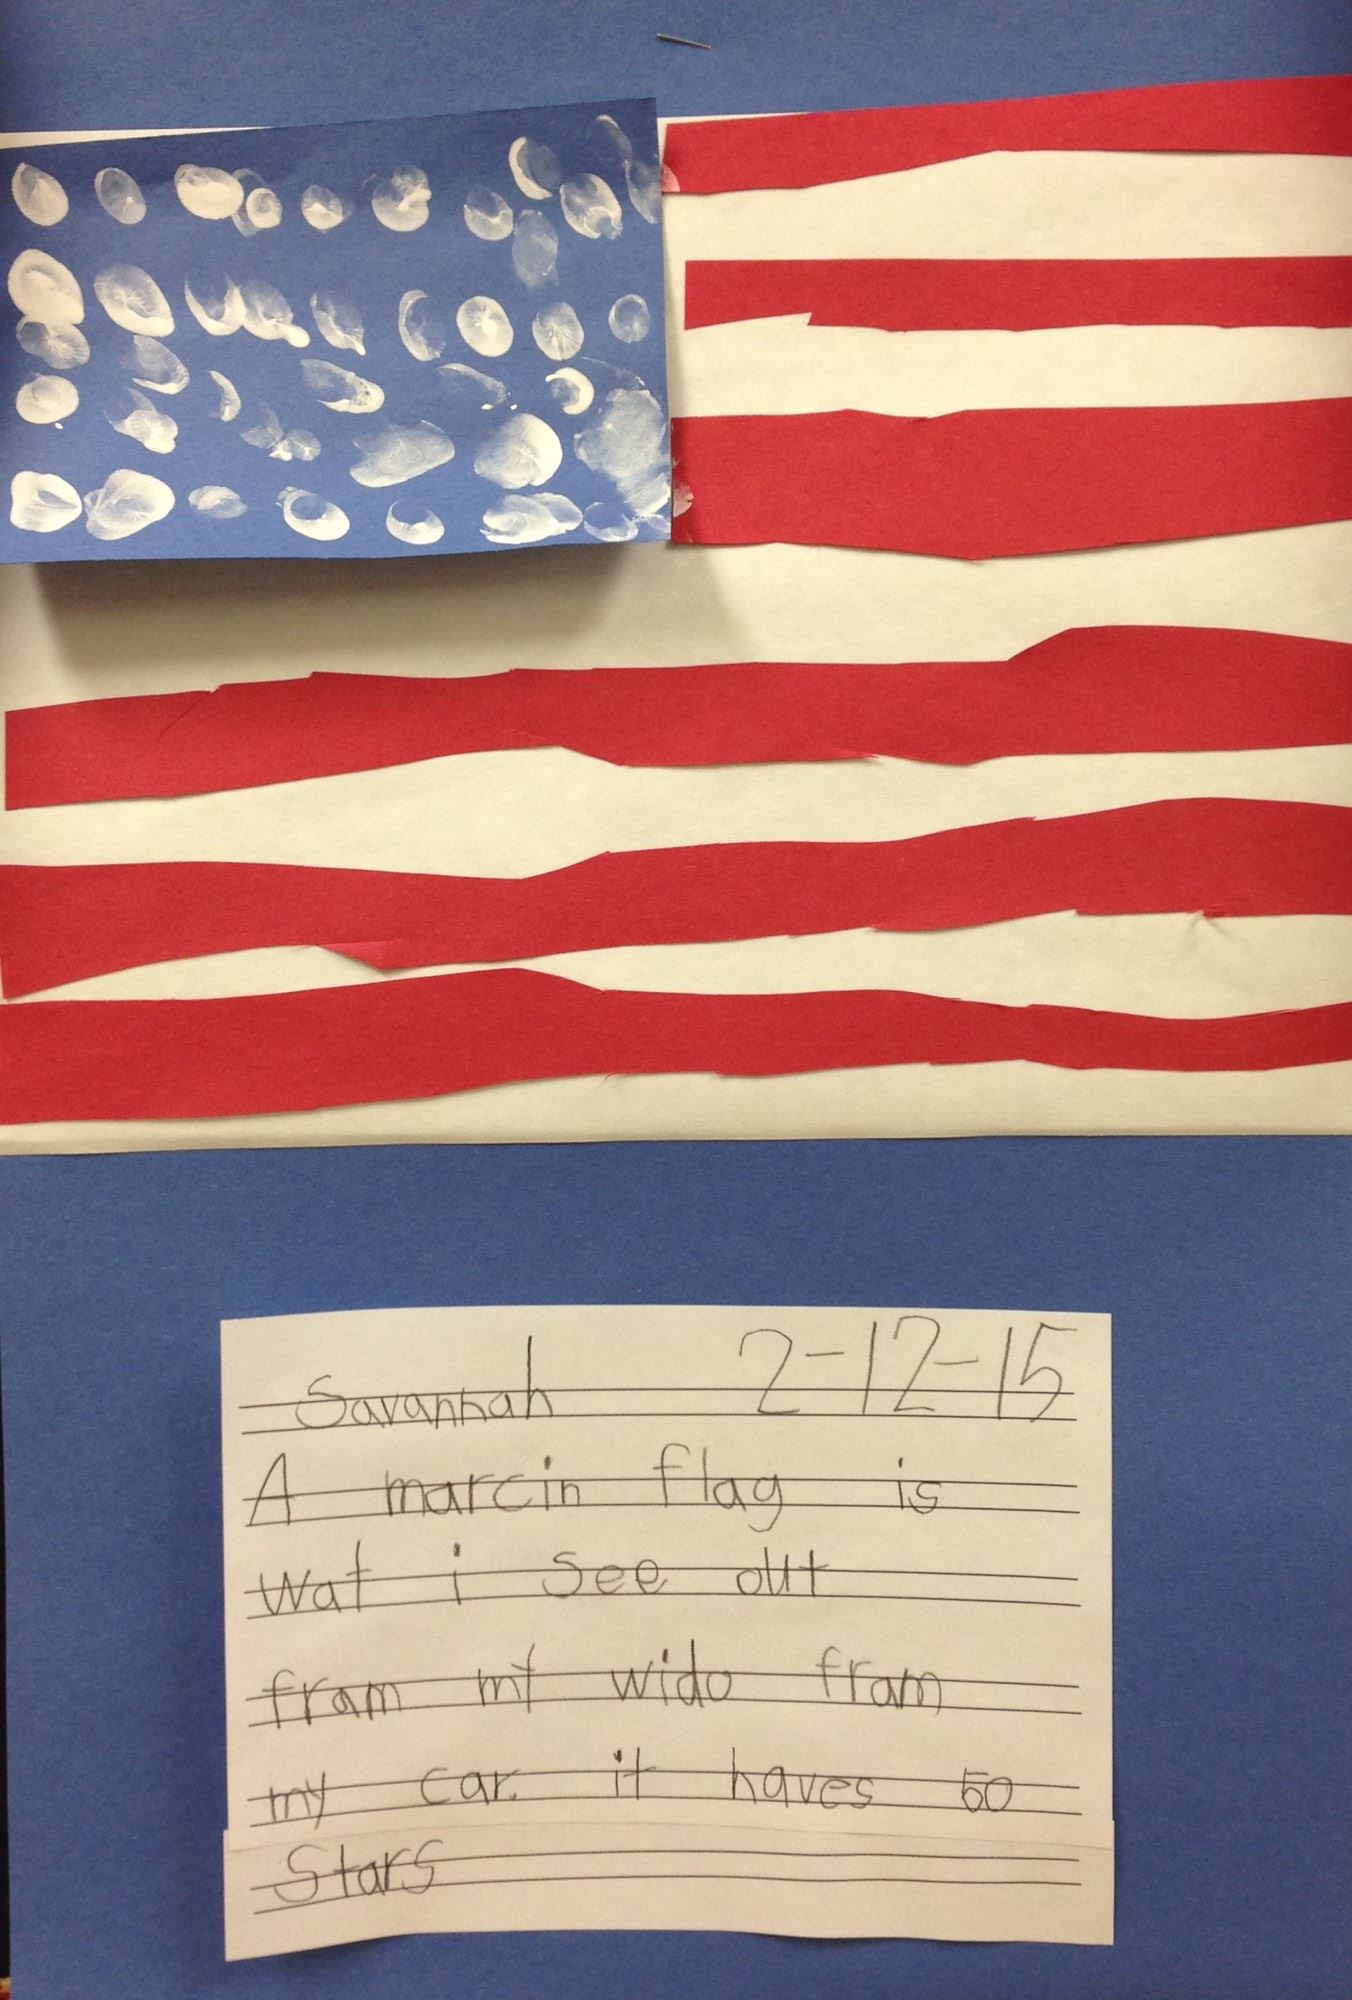 Savannah 2-12-15
A marcin flag is
wat i see out
fram my wido fram
my car. it haves 50
Stars